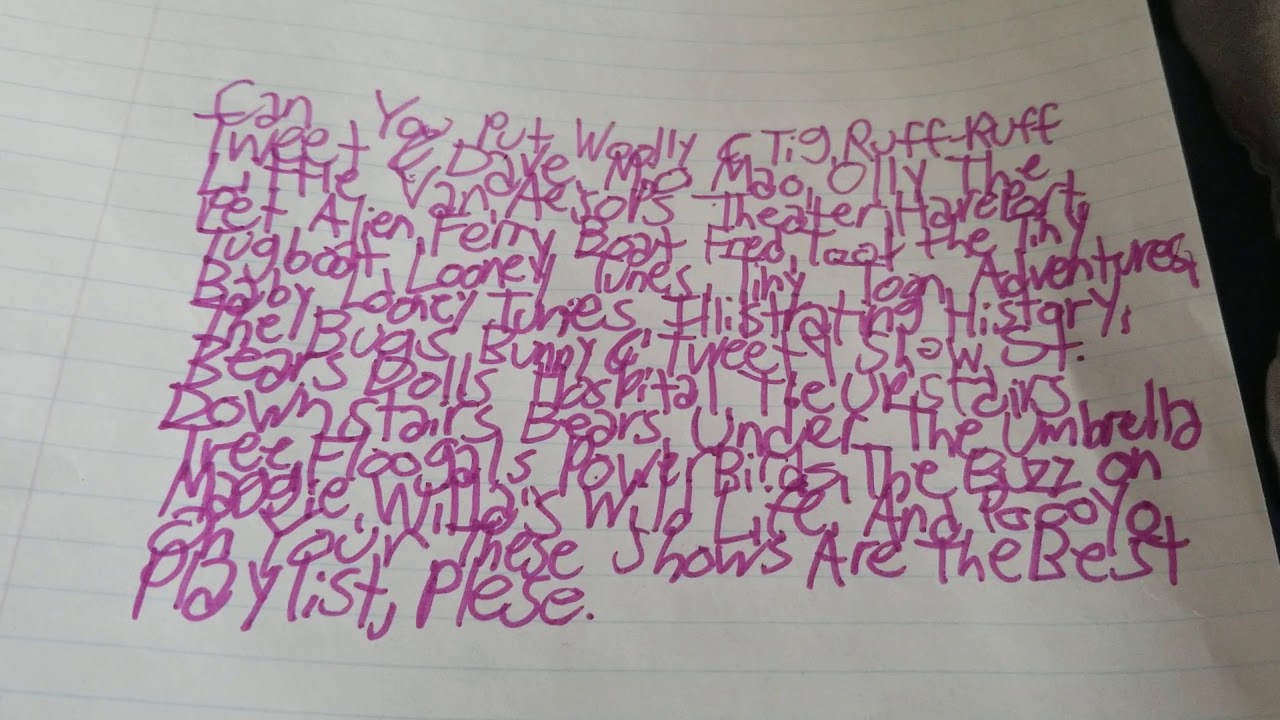 Can You Put Woolly & Tig, Ruff-Ruff
Tweet & Dave, Moo Mao, Olly The
Little Van Aesops Theater, Hareport,
Pet Alien, Ferry Boat Fred, Toot the Tiny
Tugboat, Looney Tunes, Tiny Toon Adventures,
Baby Looney Tunes, Illistrating History,
The Bugs Bunny & Tweety Show, St.
Bears Dolls Hospital, The Upstairs
Downstairs Bears, Under The Umbrella
Tree, Floogals, Power Birds, The Buzz on
Maggie, Willa's Wild Life, And Pocoyo,
On Your These Shows Are The Best
Playlist, Plese.